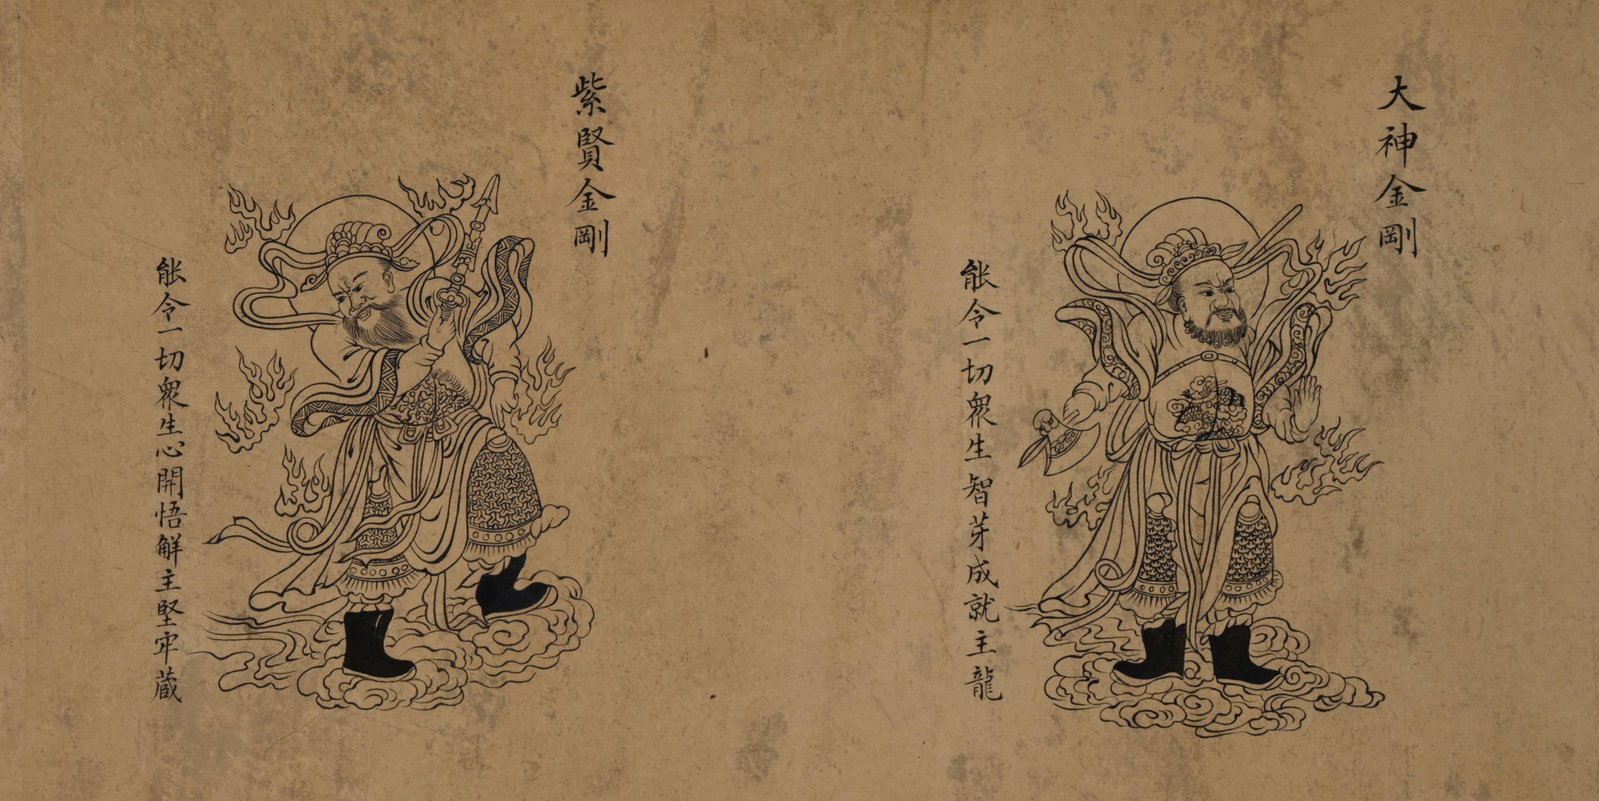 大神金剛
能令一切衆生智芽成就主龍
紫賢金剛
能令一切衆生心開悟解主堅牢藏